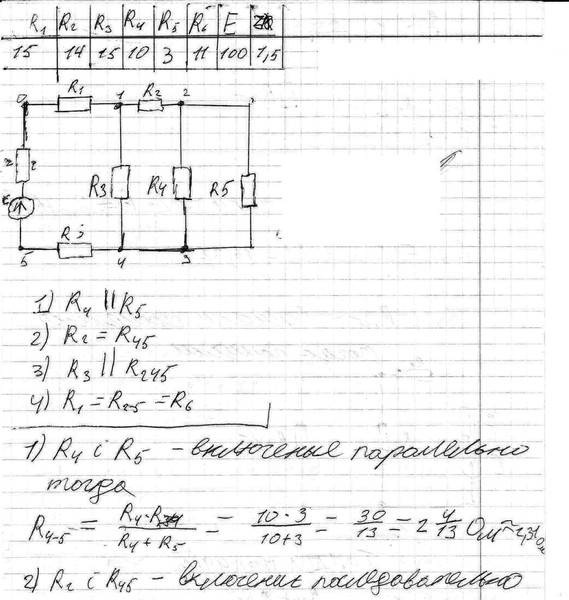 R1 R2 R3 R4 R5 R6 E
15 14 15 10 3 11 100 1,5
0 R1 1 R2 2
r
E
R3 R4 R5
5 R 4 3
1) R4 || R5
2) R2 = R45
3) R3 || R245
4) R1 = R2-5 = R6
1) R4 i R5 - включеные паралельно
тогда
R4-5 = R4·R / R4+R5 = 10·3 / 10+3 = 30/13 = 2 4/13 Ом ≈ 2,31 Ом
2) R2 i R45 - включение последовательно